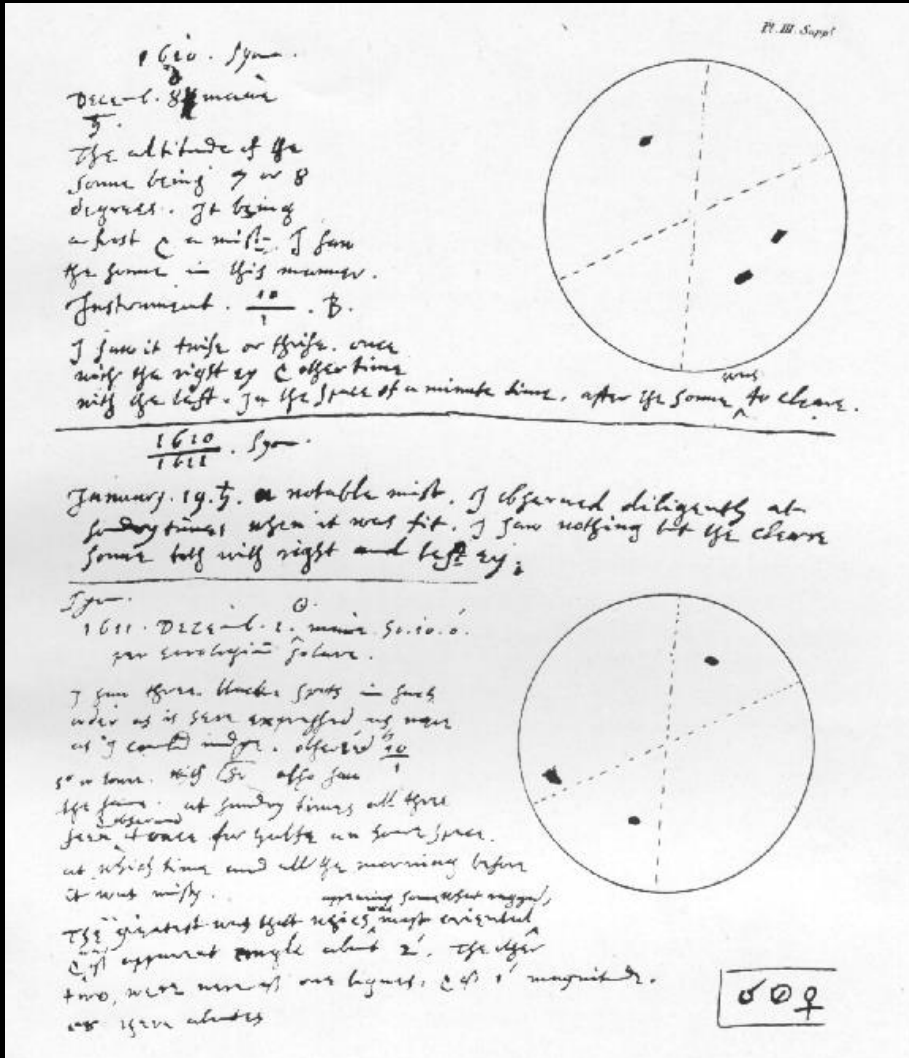 Pl. III. Suppt
1610. Syon.
Decemb. 8 mane
♄.
The altitude of the
sonne being 7 or 8
degrees. It being
a frost & a mist. I saw
the sonne in this manner.
Instrument. 10/1 . B.
I saw it twise or thrise. once
with the right ey & other time
with the left. In the space of a minute time, after the sonne was to cleare.
1610/1611 . Syon.
January. 19. ♄. a notable mist. I observed diligently at
sondry times when it was fit. I saw nothing but the cleare
sonne both with right and left ey.
Syon.
1611. Decemb. 1. ☉. mane. 10. 0.
per horologiū solare.
I saw three blacke spots in such
order as is here expressed as nere
as I could judge. observed 10/1
also saw
the same. at sundry times all three
seen & observed at once for halfe an houre space.
at which time and all the morning before
it was misty.
The greatest was that which was most oriental appearing somewhat ragged,
& of apparent angle about 2′. The other
two, were nere of one bignes, & of 1′ magnitude.
or there aboutes
♂ ☉ ♀